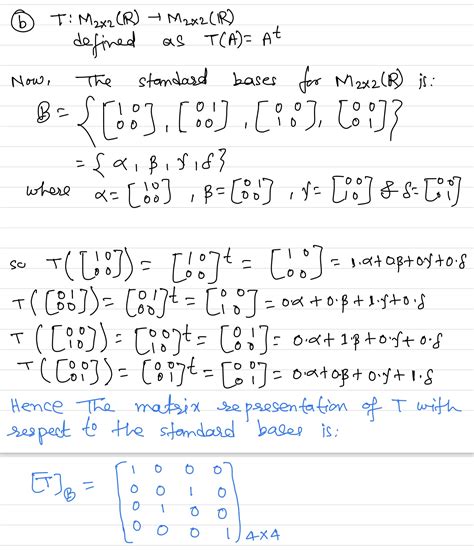 (b) T: M2x2(R) → M2x2(R)
defined as T(A) = A^t
Now, The standard bases for M2x2(R) is:
B = { [1 0; 0 0], [0 1; 0 0], [0 0; 1 0], [0 0; 0 1] }
= { α, β, γ, δ }
where α = [1 0; 0 0], β = [0 1; 0 0], γ = [0 0; 1 0] & δ = [0 0; 0 1]
so T([1 0; 0 0]) = [1 0; 0 0]^t = [1 0; 0 0] = 1.α+0β+0γ+0.δ
T([0 1; 0 0]) = [0 1; 0 0]^t = [0 0; 1 0] = 0α+0.β+1.γ+0.δ
T([0 0; 1 0]) = [0 0; 1 0]^t = [0 1; 0 0] = 0.α+1β+0.γ+0.δ
T([0 0; 0 1]) = [0 0; 0 1]^t = [0 0; 0 1] = 0α+0β+0.γ+1.δ
Hence The matrix representation of T with
respect to the standard bases is:
[T]B = [1 0 0 0; 0 0 1 0; 0 1 0 0; 0 0 0 1] 4x4